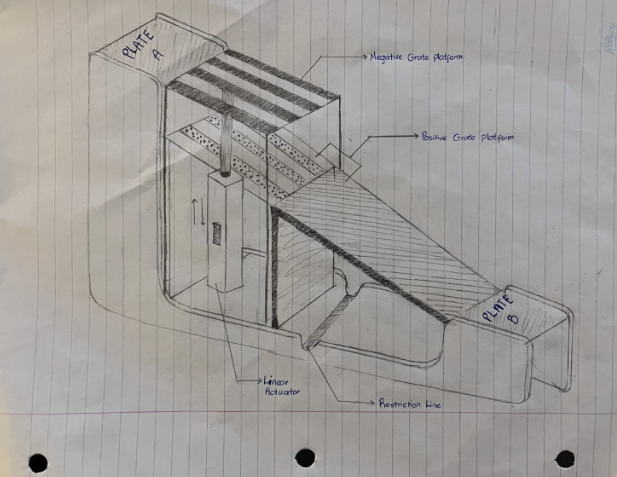 PLATE
A
Negative Grate platform
Positive Grate platform
PLATE
B
Linear
Actuator
Restriction Line